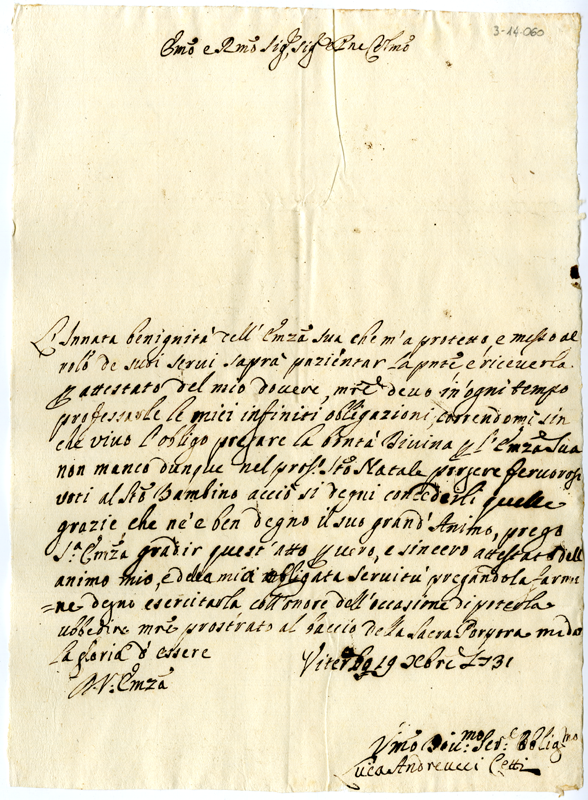 3-14-060
Emo e Rmo Sig.r, Sig.r e Pne Colmo
L'Innata benignità dell'Emza Sua che m'a protetto, e messo al
rolo de suoi servi saprà pazientar la pnte e riceverla
p attestato del mio dovere, mre devo in ogni tempo
professarle le miei infiniti obligazioni, correndomi sin
che vivo l'obligo pregare la bontà Divina p l'Emza Sua
non manco dunque nel pros.o Sto Natale porgere fervorosi
voti al Sto Bambino acciò si degni concederli quelle
grazie che ne è ben degno il suo grand'Animo, prego
S.a Emza gradir quest'atto p vero, e sincero attestato dell
animo mio, e della mia obligata servitù pregandola farme
=ne degno esercitarla coll'onore dell'occasione di poterla
ubbedire mre prostrato al baccio della Sacra Porpora me do
la gloria d'essere
Viterbo 19 Xbre 1731
D. V. Emza
Vmo Dev.mo Ser.e Oblig.mo
Luca Andreucci Cetti